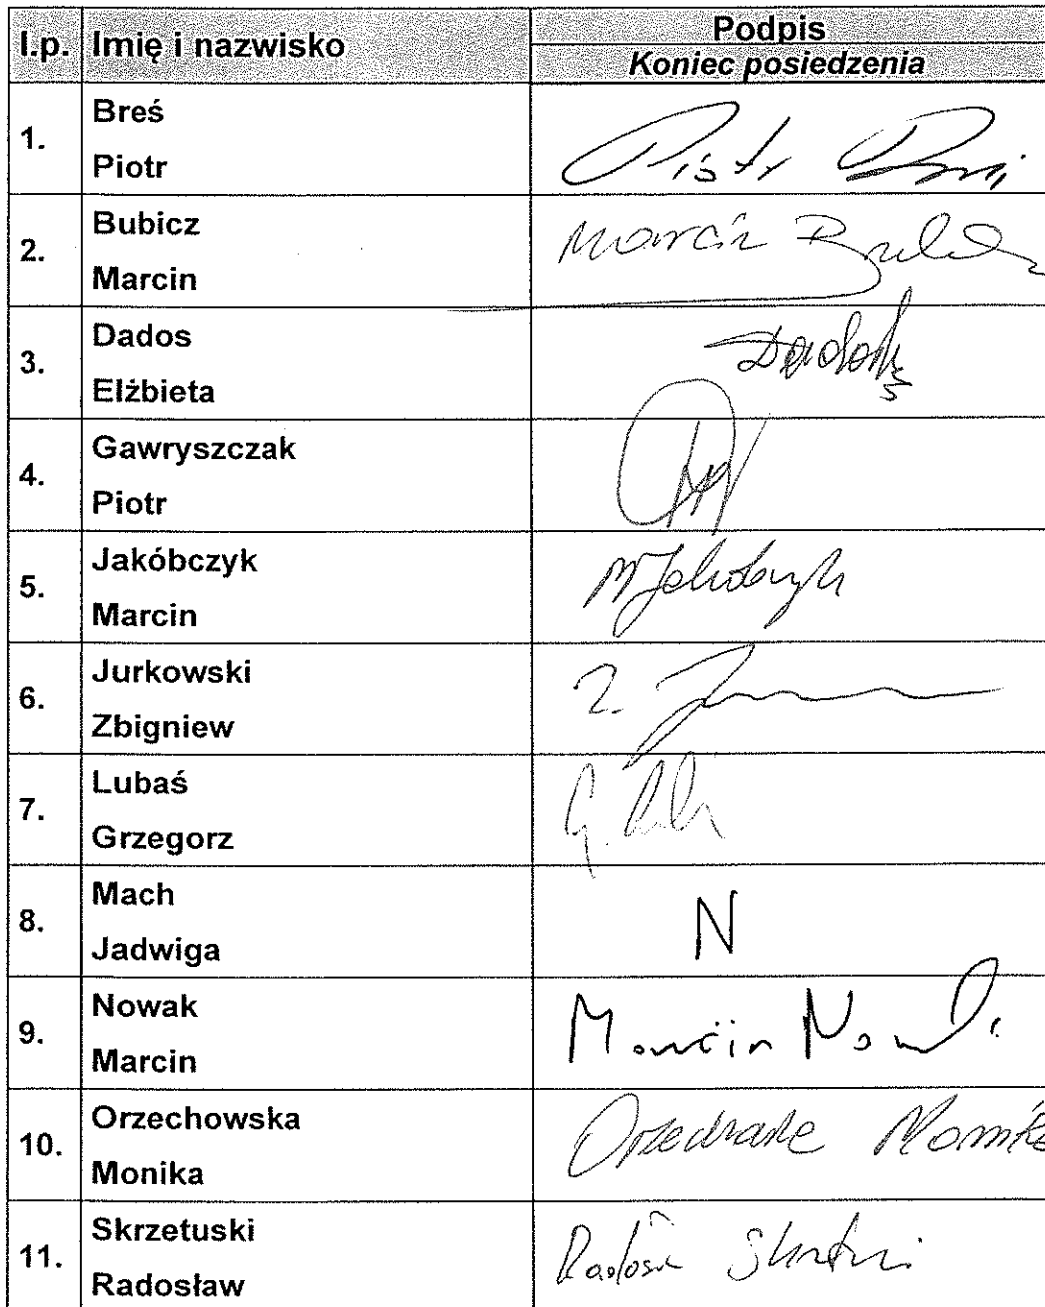 l.p. Imię i nazwisko Podpis
Koniec posiedzenia
1. Breś
Piotr
Piotr
2. Bubicz
Marcin
Marcin
3. Dados
Elżbieta
4. Gawryszczak
Piotr
5. Jakóbczyk
Marcin
M Jakóbczyk
6. Jurkowski
Zbigniew
7. Lubaś
Grzegorz
8. Mach
Jadwiga
N
9. Nowak
Marcin
Marcin Nowak
10. Orzechowska
Monika
Orzechowska Monika
11. Skrzetuski
Radosław